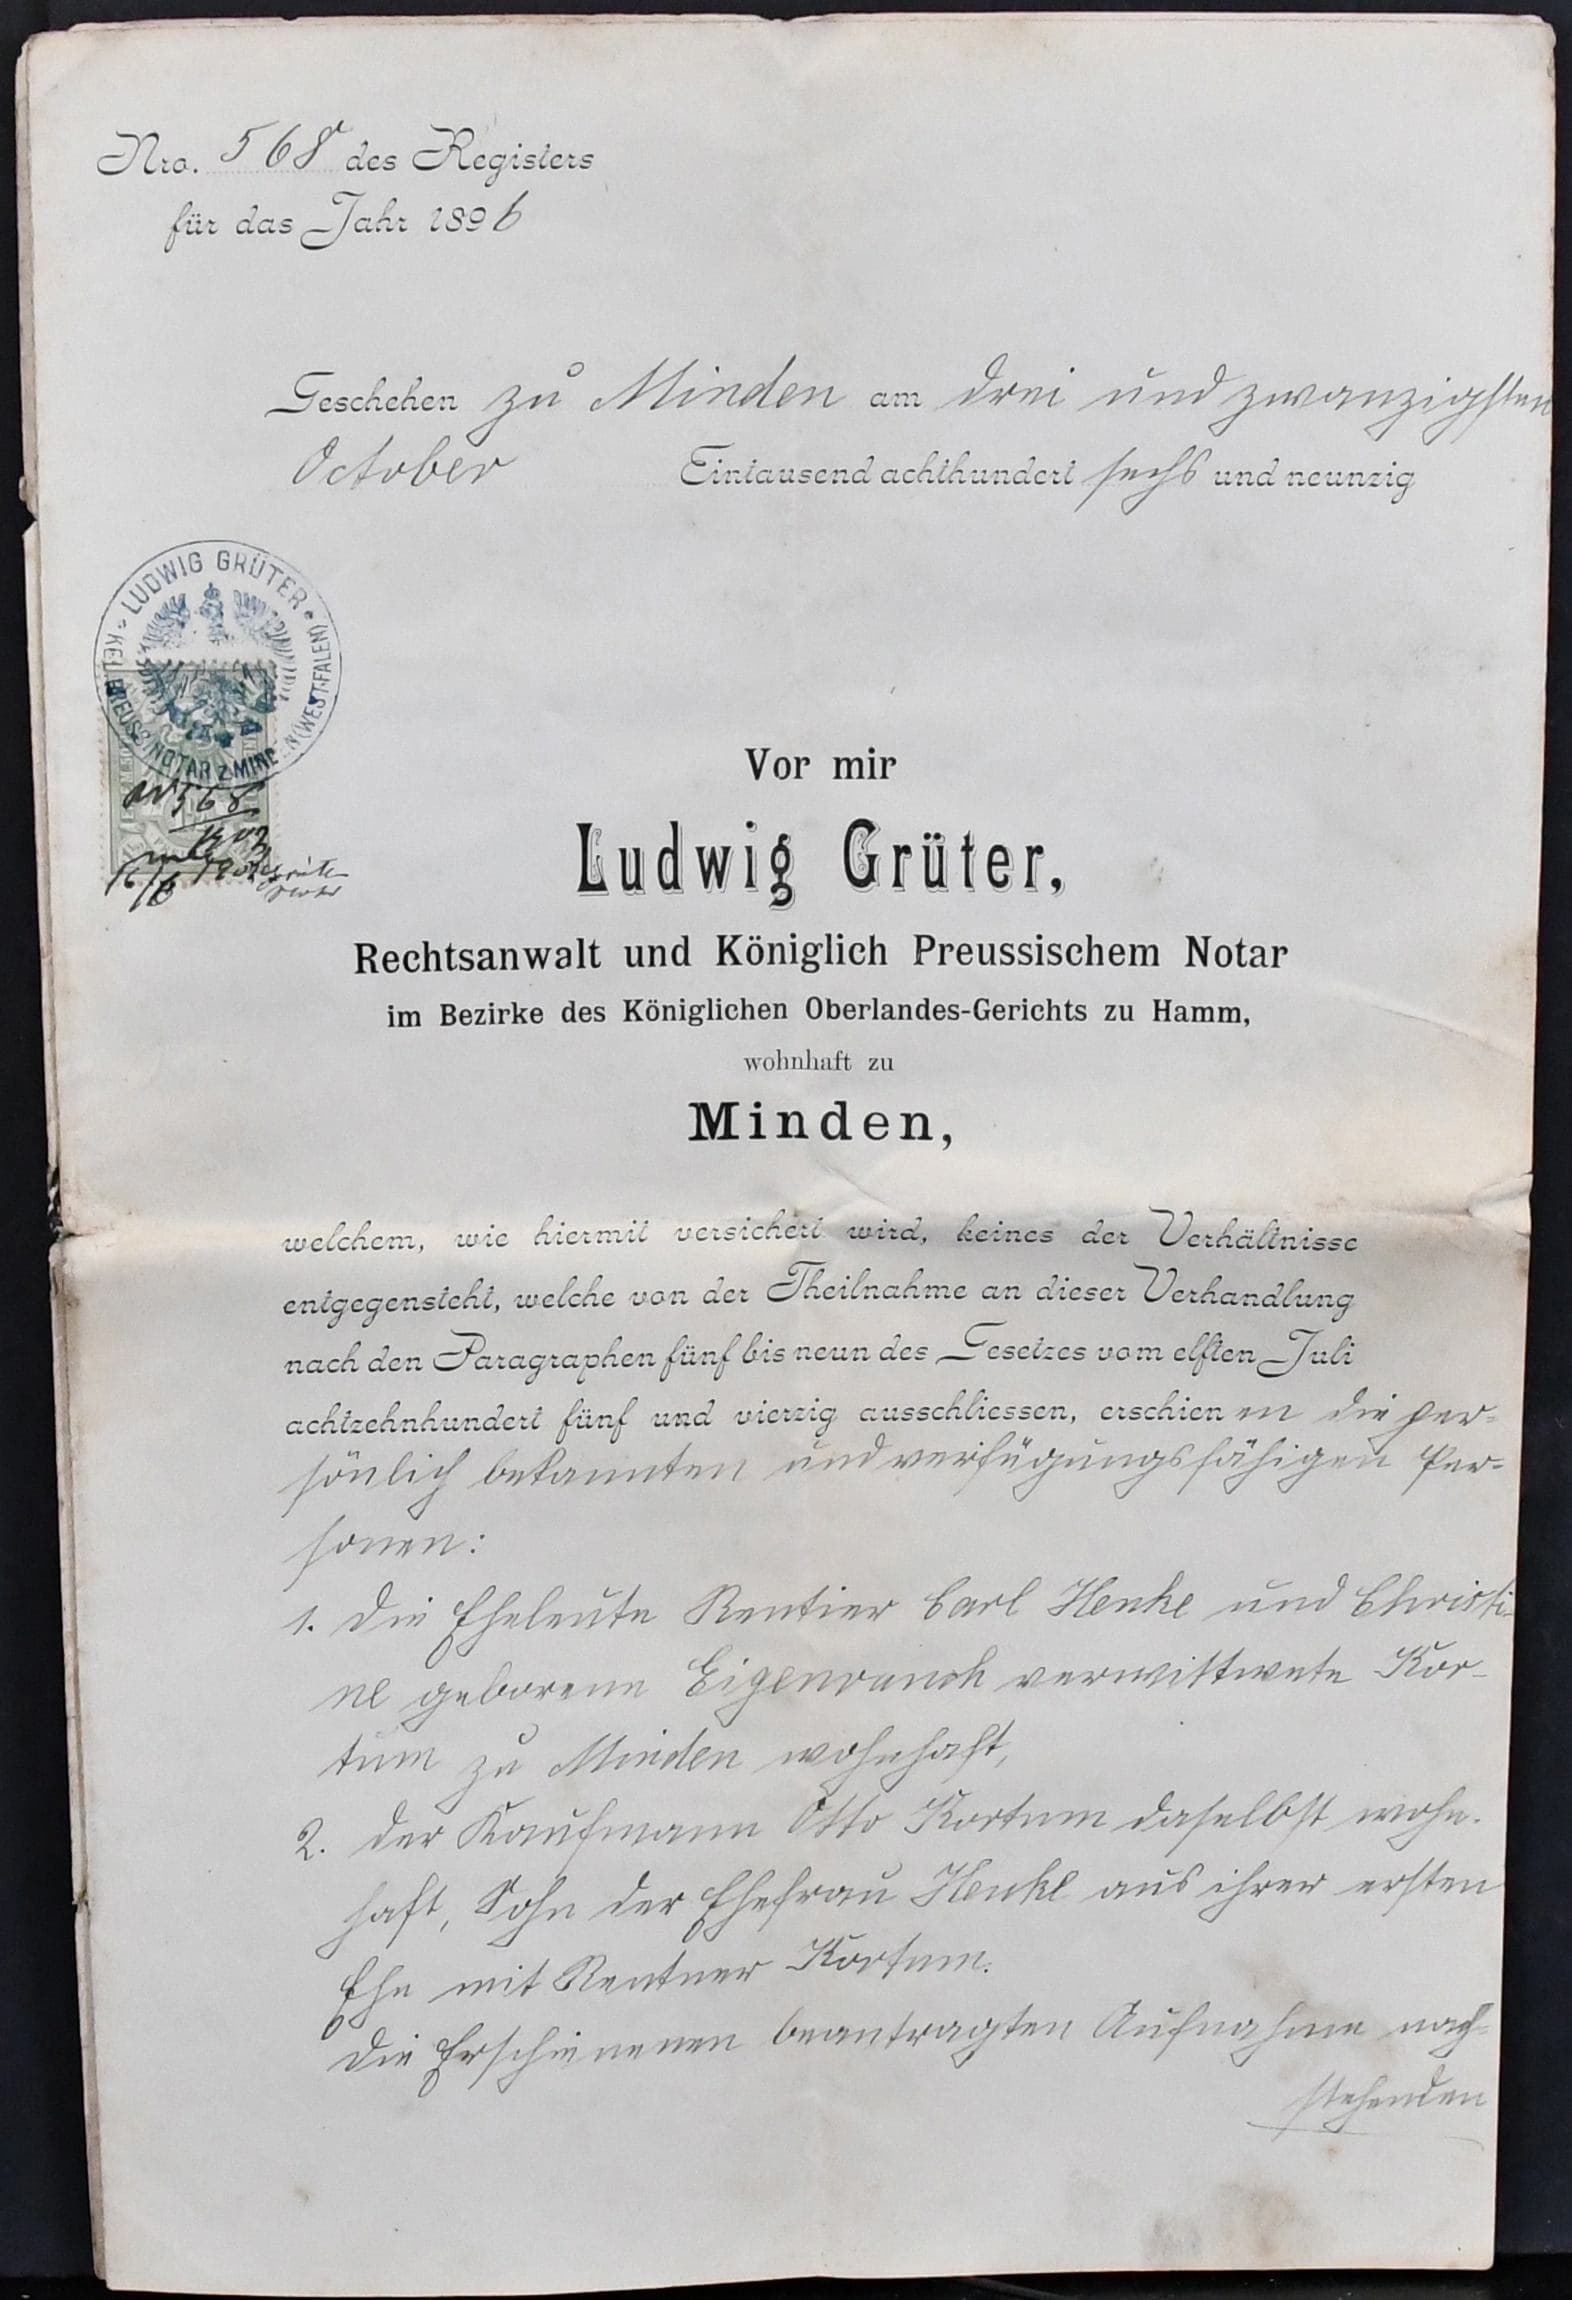 Nro. 568 des Registers
für das Jahr 1896
Geschehen zu Minden am drei und zwanzigsten
October Eintausend achthundert sechs und neunzig
LUDWIG GRÜTER
KGL. PREUSS. NOTAR Z. MINDEN (WESTFALEN)
568
Vor mir
Ludwig Grüter,
Rechtsanwalt und Königlich Preussischem Notar
im Bezirke des Königlichen Oberlandes-Gerichts zu Hamm,
wohnhaft zu
Minden,
welchem, wie hiermit versichert wird, keines der Verhältnisse
entgegensteht, welche von der Theilnahme an dieser Verhandlung
nach den Paragraphen fünf bis neun des Gesetzes vom elften Juli
achtzehnhundert fünf und vierzig ausschliessen, erschienen die per-
sönlich bekannten und verfügungsfähigen Per-
sonen:
1. die Eheleute Rentier Carl Henke und Christi-
ne geborene Eigenrauch verwittwete Kor-
tum zu Minden wohnhaft,
2. der Kaufmann Otto Kortum daselbst wohn-
haft, Sohn der Ehefrau Henke aus ihrer ersten
Ehe mit Rentner Kortum.
Die Erschienenen beantragten Aufnahme nach-
stehenden